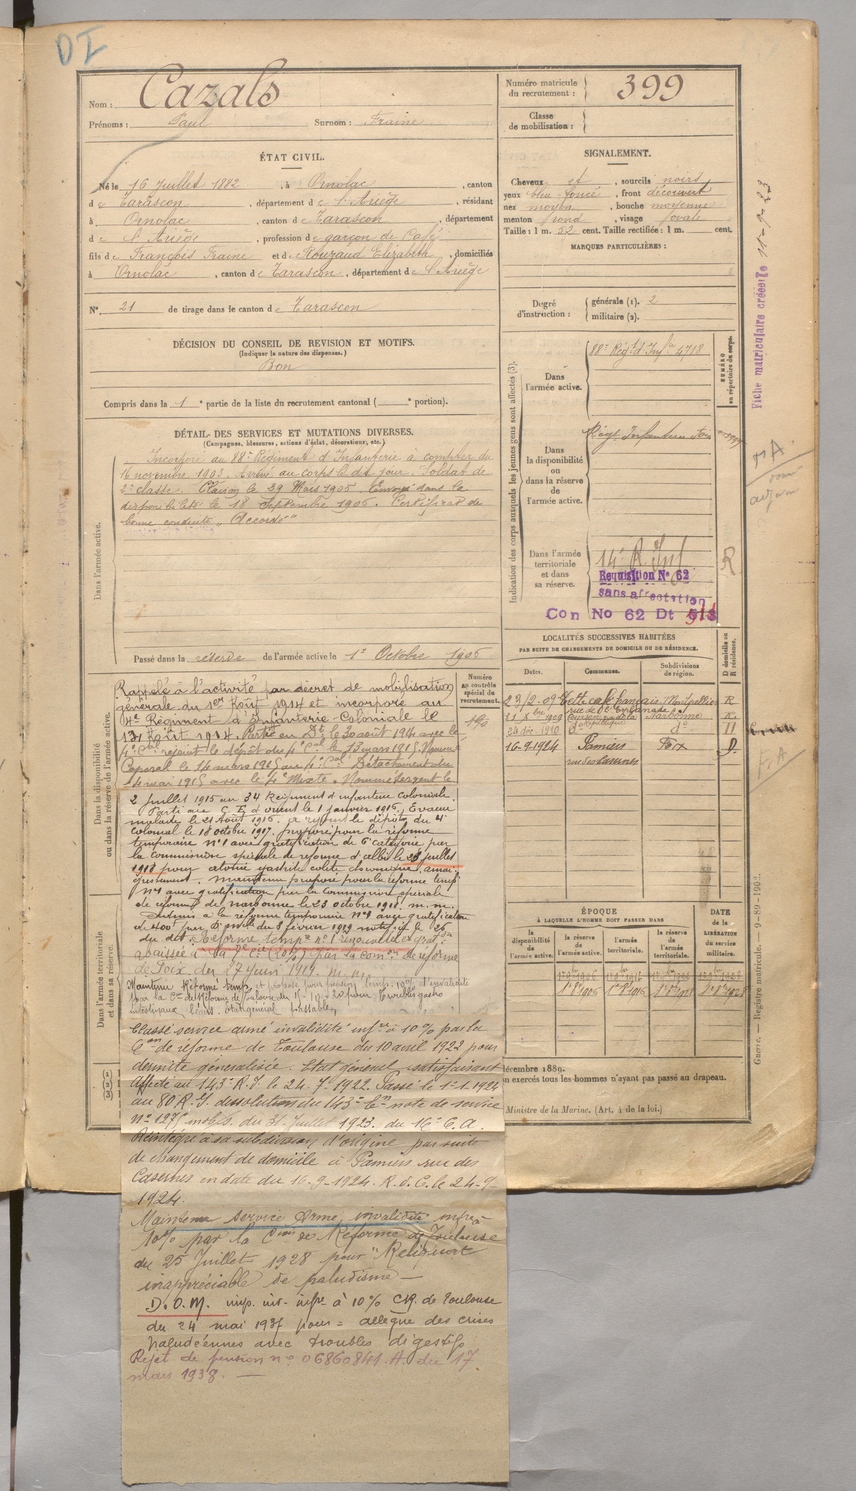 DI
Nom : Cazals
Prénoms : Paul Surnom : Fraine
ÉTAT CIVIL.
Né le 16 Juillet 1882, à Ornolac, canton
de Tarascon, département de l'Ariège, résidant
à Ornolac, canton de Tarascon, département
de l'Ariège, profession de garçon de Café
fils de François Fraine et de Rouzaud Elizabeth, domiciliés
à Ornolac, canton de Tarascon, département de l'Ariège
N° 21 de tirage dans le canton de Tarascon
DÉCISION DU CONSEIL DE REVISION ET MOTIFS.
(Indiquer la nature des dispenses.)
Bon
Compris dans la 1e partie de la liste du recrutement cantonal ( e portion).
DÉTAIL DES SERVICES ET MUTATIONS DIVERSES.
(Campagnes, blessures, actions d'éclat, décorations, etc.)
Dans l'armée active.
Incorporé au 88e Régiment d'Infanterie à compter du
16 novembre 1903. Arrivé au corps le dit jour. Soldat de
2e classe. le 29 Mars 1905. Envoyé dans la
disponibilité le 18 Septembre 1905. Certificat de
bonne conduite "Accordé"
Passé dans la réserve de l'armée active le 1er Octobre 1905
Numéro matricule du recrutement : 399
Classe de mobilisation :
SIGNALEMENT.
Cheveux et , sourcils noirs
yeux bleu foncé, front découvert
nez moyen, bouche moyenne
menton rond, visage ovale
Taille : 1 m. 52 cent. Taille rectifiée : 1 m. cent.
MARQUES PARTICULIÈRES :
Degré d'instruction : générale (1). 2
militaire (2).
Indication des corps auxquels les jeunes gens sont affectés (3).
NUMÉRO au répertoire du corps.
Dans l'armée active. 88e Régt d'Inf 4718
Dans la disponibilité ou dans la réserve de l'armée active. Régt Infanterie Foix
Dans l'armée territoriale et dans sa réserve. 14e R. Inf
Requisition N° 62
sans affectation
Con No 62 Dt
R
Fiche matriculaire créée le 11-9-23
LOCALITÉS SUCCESSIVES HABITÉES
PAR SUITE DE CHANGEMENTS DE DOMICILE OU DE RÉSIDENCE.
Dates. Communes. Subdivisions de région. D domicile ou R résidence.
23/2-09 Cette café français Montpellier R
rue de l'Esplanade
Narbonne R
24 déc 1910 do
16-9-1924 Pamiers Foix D.
rue des Casernes
ÉPOQUE
À LAQUELLE L'HOMME DOIT PASSER DANS
DATE DE LA LIBÉRATION du service militaire.
la disponibilité de l'armée active. la réserve de l'armée active. l'armée territoriale. la réserve de l'armée territoriale.
décembre 1889.
n exercés tous les hommes n'ayant pas passé au drapeau.
Ministre de la Marine. (Art. 4 de la loi.)
Guerre. — Registre matricule. — 9-89-1902.
Dans la disponibilité ou dans la réserve de l'armée active.
Numéro au contrôle spécial du recrutement.
Rappelé à l'activité par décret de mobilisation
générale du 1er Août 1914 et incorporé au
4e Régiment d'Infanterie Coloniale le
13 Août 1914. Parti en Bt le 30 août 1914 avec le
4e Cal rejoint le dépôt du 4e Cal le 13 mars 1915 Nommé
Caporal le 14 mars 1915 au 4e Cal. Détachement du
14 mai 1915 avec le 4e Mixte. Nommé Sergent le
2 Juillet 1915 au 34 Régiment d'infanterie coloniale.
Parti aux C. E. d'orient le 1 janvier 1916. Evacué
malade le 21 Août 1916. a rejoint le dépôt du 4e
colonial le 18 octobre 1917. proposé pour la réforme
temporaire n°1 avec gratification de 6e catégorie par
la commission spéciale de réforme d'Albi le 23 juillet
1918 pour atonie gastrite colite chronique, amai-
grissement. Maintenu proposé pour la réforme temp
N°1 avec gratification par la Commission spéciale
de réforme de Narbonne le 23 octobre 1918. m. m.
Admis à la réforme temporaire N°1 avec gratification
de 400f par Don Mlle du 8 février 1919 notifié le 26
du dit. Réforme tempre n°1 renouvelée gratif on
abaissée à la 7e Cie (20%) par la Comon de réforme
de Foix du 17 juin 1919. m. m.
Maintenu Réforme temp. et proposé pour pension temp. 10% d'invalidité
Dans l'armée territoriale et dans sa réserve.
1
2
3
Classé service armé invalidité infre à 10% par la
Con de réforme de Toulouse du 10 avril 1922 pour
dermite généralisée. Etat général satisfaisant
Affecté au 143e R.I. le 24.7.1922. Passé le 1-1-1924
au 80 R.I. dissolution du 143e Cie note de service
n° 127e mobis. du 31 Juillet 1923. du 16e C.A.
Réintégré à sa subdivision d'origine par suite
de changement de domicile à Pamiers rue des
Casernes en date du 16-9-1924. R. d. C. le 24-9
1924.
Maintenu service Armé, invalidité infre à
10% par la Con de Réforme de Toulouse
du 25 Juillet 1928 pour "Reliquat
inappréciable de paludisme —
D.O.M. imp. inv. infre à 10% C.R. de Toulouse
du 24 mai 1937 pour = allègue des crises
paludéennes avec troubles digestifs
Rejet de pension n° 06860841.A. du 17
mars 1938. —